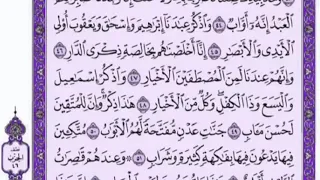 ٱلْعَبْدُ إِنَّهُۥٓ أَوَّابٌ ٤٤ وَٱذْكُرْ عِبَٰدَنَآ إِبْرَٰهِيمَ وَإِسْحَٰقَ وَيَعْقُوبَ أُو۟لِى
ٱلْأَيْدِى وَٱلْأَبْصَٰرِ ٤٥ إِنَّآ أَخْلَصْنَٰهُم بِخَالِصَةٍ ذِكْرَى ٱلدَّارِ ٤٦
وَإِنَّهُمْ عِندَنَا لَمِنَ ٱلْمُصْطَفَيْنَ ٱلْأَخْيَارِ ٤٧ وَٱذْكُرْ إِسْمَٰعِيلَ
وَٱلْيَسَعَ وَذَا ٱلْكِفْلِ وَكُلٌّ مِّنَ ٱلْأَخْيَارِ ٤٨ هَٰذَا ذِكْرٌ وَإِنَّ لِلْمُتَّقِينَ
لَحُسْنَ مَـَٔابٍ ٤٩ جَنَّٰتِ عَدْنٍ مُّفَتَّحَةً لَّهُمُ ٱلْأَبْوَٰبُ ٥٠ مُتَّكِـِٔينَ
فِيهَا يَدْعُونَ فِيهَا بِفَٰكِهَةٍ كَثِيرَةٍ وَشَرَابٍ ٥١ وَعِندَهُمْ قَٰصِرَٰتُ